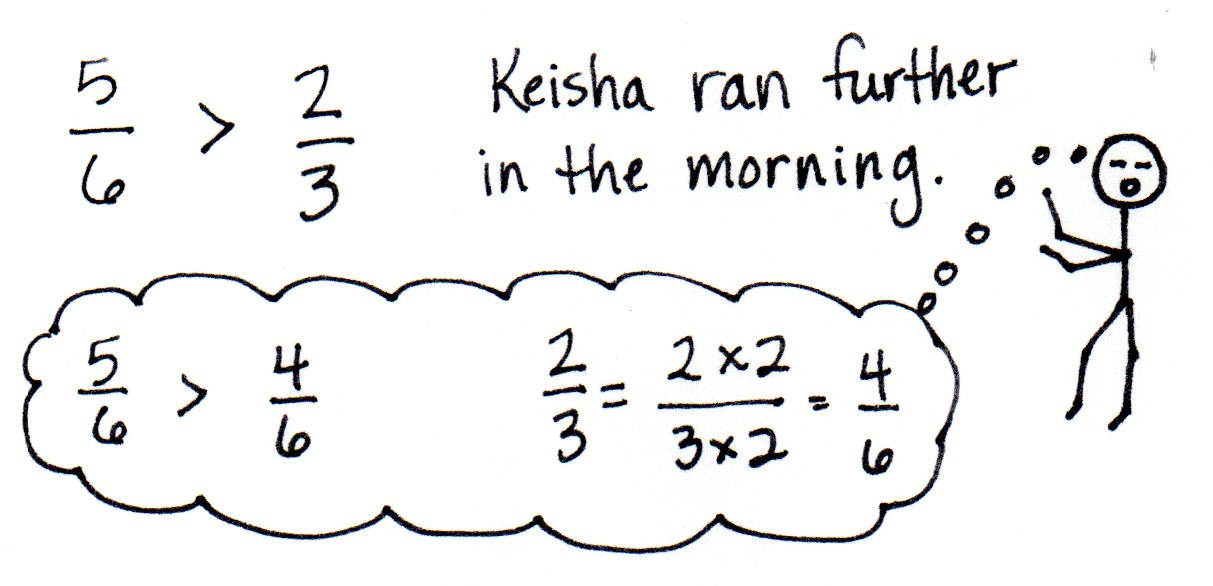 5/6 > 2/3
Keisha ran further
in the morning.
5/6 > 4/6
2/3 = 2×2/3×2 = 4/6